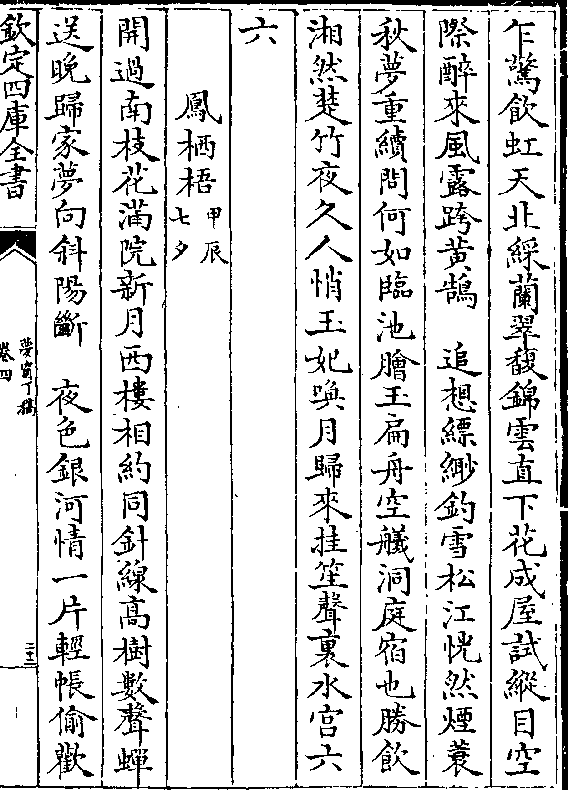 乍驚飲虹天北綵蘭翠馥錦雲直下花成屋試縱目空
際醉來風露跨黄鵠　追想縹緲釣雪松江恍然煙蓑
秋夢重續問何如臨池膾玉扁舟空艤洞庭宿也勝飲
湘然楚竹夜久人悄玉妃喚月歸來挂笙聲裏水宫六
六
鳳栖梧甲辰七夕
開過南枝花滿院新月西樓相約同針線高樹數聲蟬
送晚歸家夢向斜陽斷　夜色銀河情一片輕帳偷歡
欽定四庫全書
夢窗丁稿
卷四
二十三